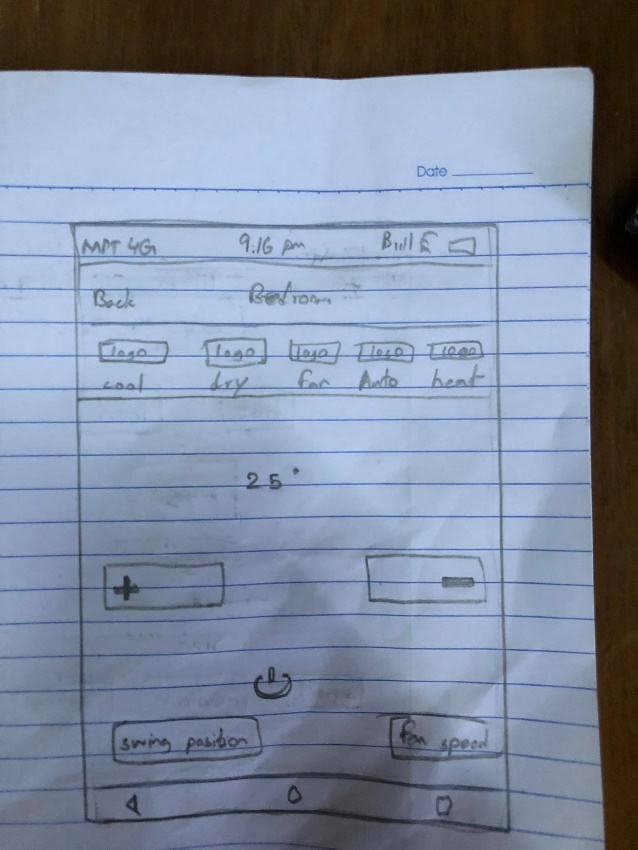 Date
MPT 4G 9:16 pm
Back Bedroom
logo logo logo logo logo
cool dry fan Auto heat
25°
+ -
swing position fan speed